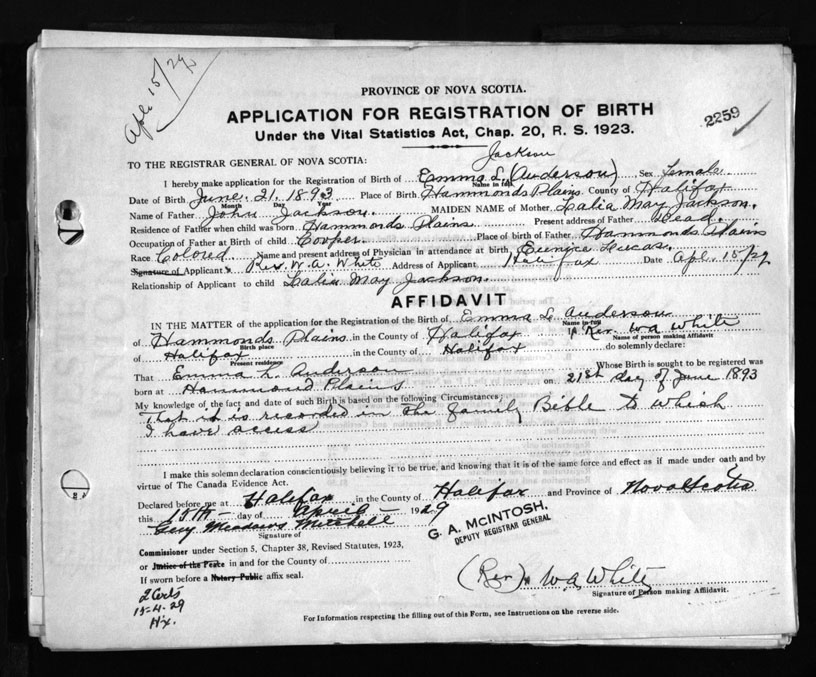 Apl. 15/29
PROVINCE OF NOVA SCOTIA.
APPLICATION FOR REGISTRATION OF BIRTH
2259
Under the Vital Statistics Act, Chap. 20, R. S. 1923.
Jackson
TO THE REGISTRAR GENERAL OF NOVA SCOTIA:
I hereby make application for the Registration of Birth of Emma L. (Anderson) Sex Female
Name in full
Date of Birth June. 21. 1893 Place of Birth Hammonds Plains County of Halifax
Month Day Year
Name of Father John Jackson. MAIDEN NAME of Mother Lalia May Jackson.
Residence of Father when child was born Hammonds Plains Present address of Father Dead.
Occupation of Father at Birth of child Cooper. Place of birth of Father Hammonds Plains
Race Colored Name and present address of Physician in attendance at birth Eunice Lucas.
Signature of Applicant Rev. W. A. White Address of Applicant Halifax Date Apl. 15/29
Relationship of Applicant to child Lalia May Jackson.
AFFIDAVIT
IN THE MATTER of the application for the Registration of the Birth of Emma L. Anderson
Name in full
of Hammonds Plains in the County of Halifax I Rev. W A White
Birth place Name of person making Affidavit
of Halifax in the County of Halifax do solemnly declare:
Present residence
That Emma L. Anderson Whose Birth is sought to be registered was
born at Hammond Plains on 21st day of June 1893
My knowledge of the fact and date of such Birth is based on the following Circumstances;
That it is recorded in the family Bible to which
I have access
I make this solemn declaration conscientiously believing it to be true, and knowing that it is of the same force and effect as if made under oath and by
virtue of The Canada Evidence Act.
Declared before me at Halifax in the County of Halifax and Province of Nova Scotia
this 15th day of April 1929
Guy Meadows Mitchell
G. A. McINTOSH,
DEPUTY REGISTRAR GENERAL
Signature of
Commissioner under Section 5, Chapter 38, Revised Statutes, 1923,
or Justice of the Peace in and for the County of
If sworn before a Notary Public affix seal.
(Rev) W. A. White
Signature of Person making Affidavit.
2 Certs
15-4-29
Hx.
For Information respecting the filling out of this Form, see Instructions on the reverse side.